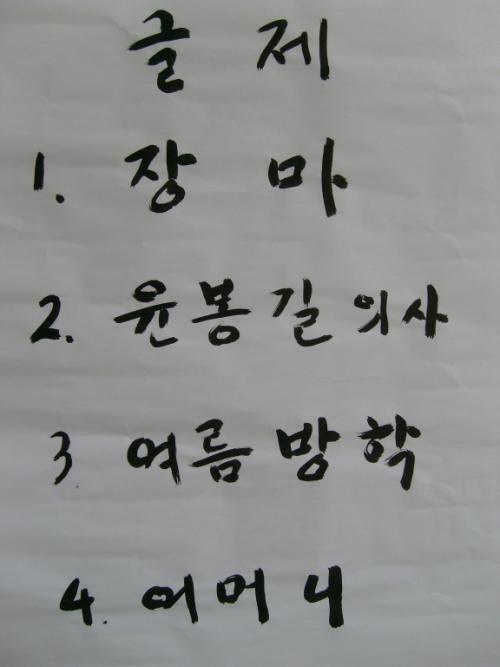 글 제
1. 장 마
2. 윤봉길 의사
3 여름방학
4. 어머니